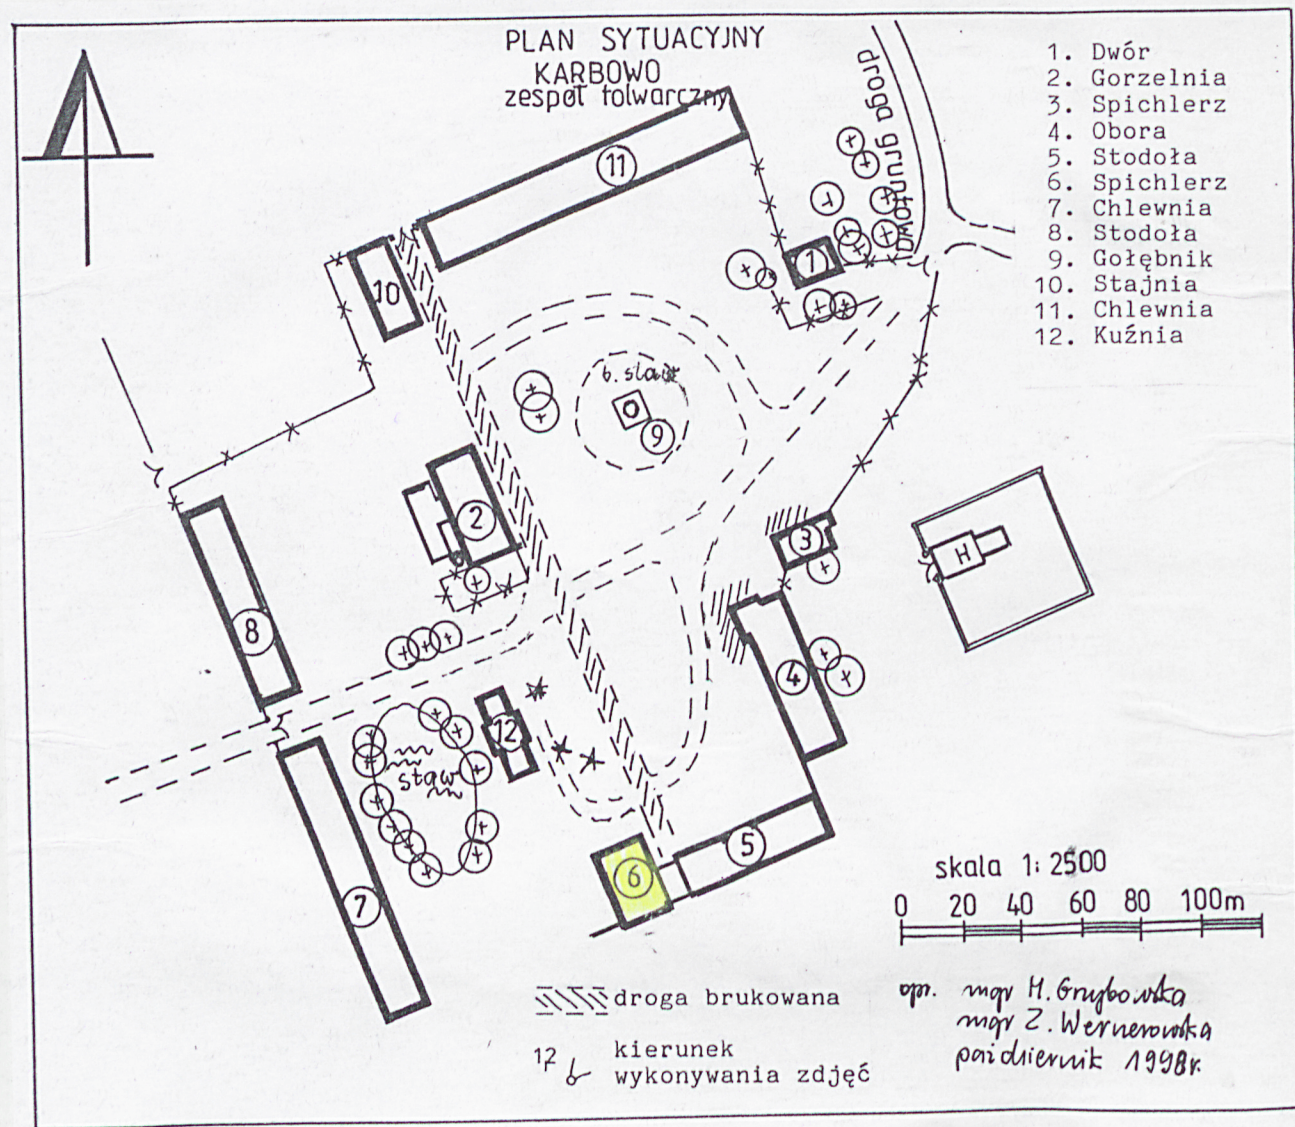 PLAN SYTUACYJNY
KARBOWO
zespół folwarczny
1. Dwór
2. Gorzelnia
3. Spichlerz
4. Obora
5. Stodoła
6. Spichlerz
7. Chlewnia
8. Stodoła
9. Gołębnik
10. Stajnia
11. Chlewnia
12. Kuźnia
droga gruntowa
11
10
1
b. staw
9
2
3
H
8
4
12
staw
5
6
7
skala 1:2500
0 20 40 60 80 100m
droga brukowana
12 kierunek
wykonywania zdjęć
opr. mgr H. Grybowska
mgr Z. Wernerowska
październik 1998r.